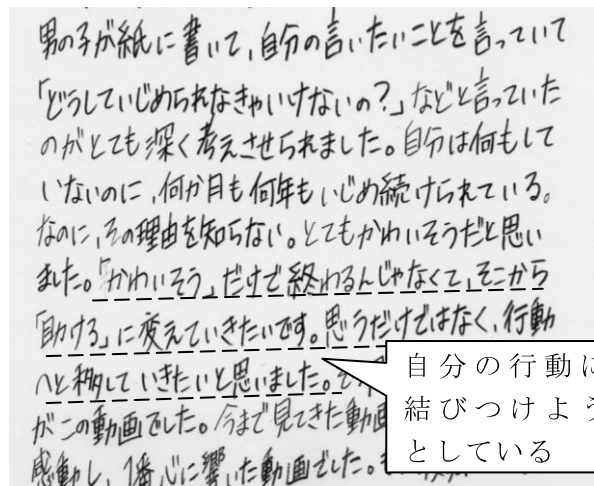 男の子が紙に書いて、自分の言いたいことを言っていて
「どうしていじめられなきゃいけないの？」などと言っていた
のがとても深く考えさせられました。自分は何もして
いないのに、何か月も何年もいじめ続けられている。
なのに、その理由を知らない。とてもかわいそうだと思い
ました。「かわいそう」だけで終わるんじゃなくて、そこから
「助ける」に変えていきたいです。思うだけではなく、行動
へと移していきたいと思いました。
がこの動画でした。今まで見てきた動画
感動し、1番心に響いた動画でした。
自分の行動に
結びつけよう
としている